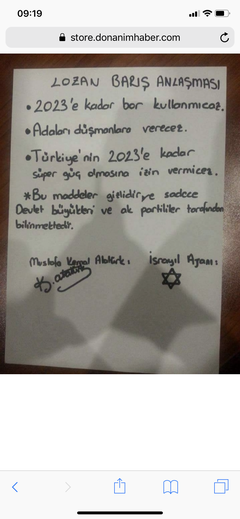 09:19
store.donanimhaber.com
LOZAN BARIŞ ANLAŞMASI
• 2023'e kadar bor kullanmıcaz.
• Adaları düşmanlara verecez.
• Türkiye'nin 2023'e kadar
süper güç olmasına izin vermicez.
* Bu maddeler gizlidir ve sadece
Devlet büyükleri ve ak partililer tarafından
bilinmektedir.
Mustafa Kemal Atatürk:
İsrayil Ajanı:
K. Atatürk